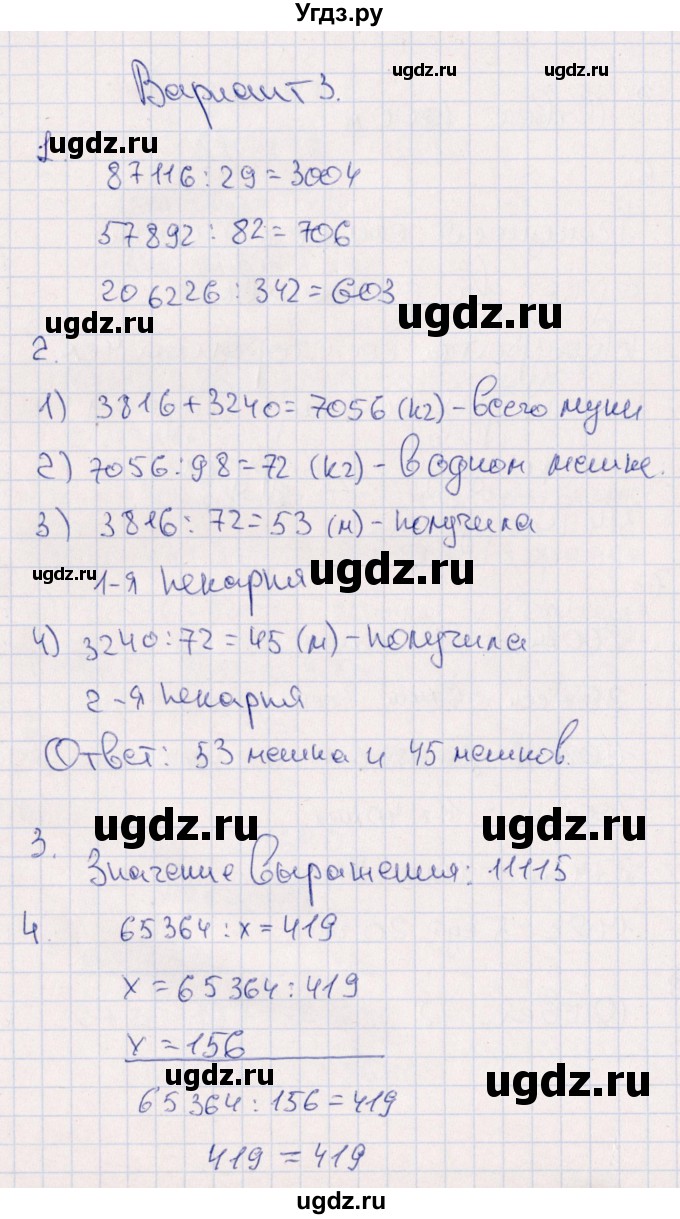 Угдз.ру
Вариант 3.
ugdz.ru
1.
ugdz.ru
87116 : 29 = 3004
57892 : 82 = 706
206226 : 342 = 603
ugdz.ru
ugdz.ru
2.
1) 3816 + 3240 = 7056 (кг) - всего муки
2) 7056 : 98 = 72 (кг) - в одном мешке.
3) 3816 : 72 = 53 (м) - получила
ugdz.ru
1-я пекарня
ugdz.ru
4) 3240 : 72 = 45 (м) - получила
2-я пекарня
Ответ: 53 мешка и 45 мешков.
ugdz.ru
ugdz.ru
3.
Значение выражения: 11115
4.
65364 : x = 419
x = 65364 : 419
x = 156
ugdz.ru
ugdz.ru
65364 : 156 = 419
419 = 419
ugdz.ru